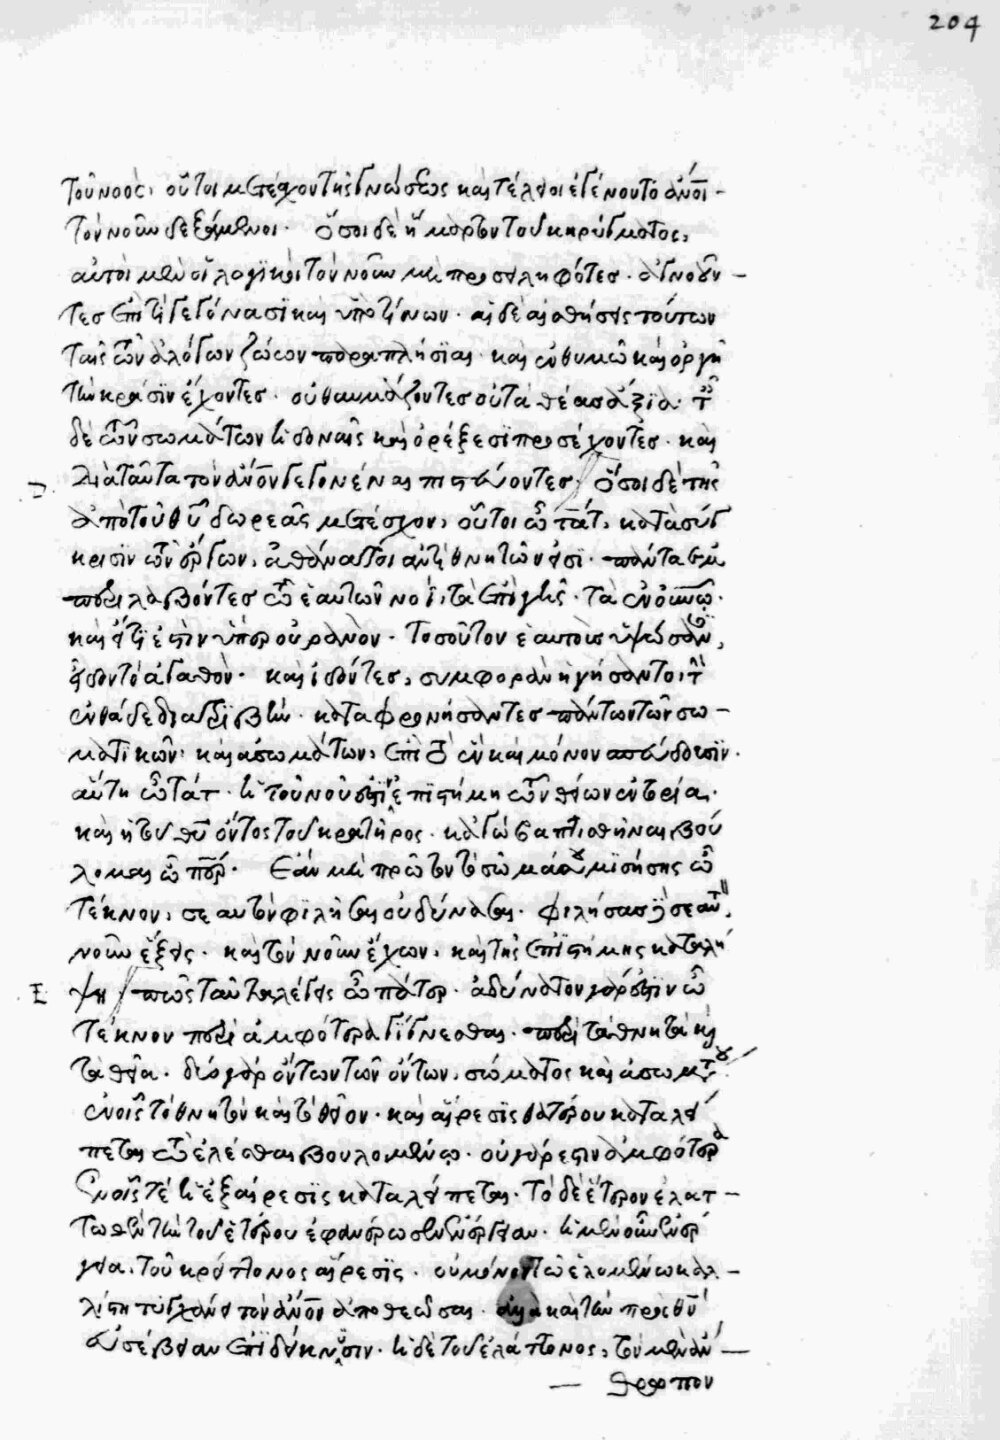 204
τοῦ νοὸς, οὗτοι μετέσχον τῆς γνώσεως καὶ τέλειοι ἐγένοντο ἀνοι
τὸν νοῦν δεξάμενοι. ὅσοι δὲ ἥμαρτον τοῦ κηρύγματος,
αὐτοὶ μὲν οἱ λογικοὶ τὸν νοῦν μὴ προσειληφότες. ἀγνοοῦν
τες ἐπὶ τί γεγόνασι καὶ ὑπὸ τίνων. αἱ δὲ αἰσθήσεις τούτων
ταῖς τῶν ἀλόγων ζώων παραπλήσιαι. καὶ ἐν θυμῶ καὶ ὀργῆ
τὴν κρᾶσιν ἔχοντες. οὐ θαυμάζοντες οὐ τὰ θέας ἄξια. τ
δὲ τῶν σωμάτων ἡδοναῖς καὶ ὀρέξεσι προσέχοντες. καὶ
διὰ ταῦτα τὸν ἀνον γεγονέναι πιστεύοντες / ὅσοι δὲ τῆς
ἀπὸ τοῦ θυ δωρεᾶς μετέσχον, οὗτοι ὦ τὰτ, κατὰ σύγ
κρισιν τῶν ἔργων, ἀθάνατοι ἀντὶ θνητῶν εἰσι. πάντα ἐμ
περιλαβόντες τῶ ἑαυτῶν νοΐ, τὰ ἐπὶ γῆς. τὰ ἐν οὐνῶ.
καὶ εἴ τι ἐστὶν ὑπὲρ οὐρανὸν. τοσοῦτον ἑαυτοὺς ὑψώσαντες,
εἶδον τὸ ἀγαθὸν. καὶ ἰδόντες, συμφορὰν ἡγήσαντο τὴν
ἐνθάδε διατριβὴν. καταφρονήσαντες πάντων τῶν σω
ματικῶν καὶ ἀσωμάτων, ἐπὶ τὸ ἓν καὶ μόνον σπεύδουσιν.
αὕτη ὦ τὰτ. ἡ τοῦ νοῦ ἐστὶν ἐπιστήμη τῶν θείων ἐντορία.
καὶ ἡ τοῦ θυ ὄντος τοῦ κρατῆρος. κἀγὼ βαπτισθῆναι βού
λομαι ὦ περ. ἐὰν μὴ πρῶτον τὸ σῶμά σου μισήσης ὦ
τέκνον, σεαυτὸν φιλῆσαι οὐ δύνασαι. φιλήσας δὲ σεαυτ,
νοῦν ἕξεις. καὶ τὸν νοῦν ἔχων, καὶ τῆς ἐπιστήμης μεταλή
ψη / πῶς ταῦτα λέγεις ὦ πάτερ. ἀδύνατον γάρ ἐστιν ὦ
τέκνον περὶ ἀμφότερα γίγνεσθαι. περὶ τὰ θνητὰ καὶ
τὰ θεῖα. δύο γὰρ ὄντων τῶν ὄντων, σώματος καὶ ἀσωμάτου
ἐν οἷς τὸ θνητὸν καὶ τὸ θεῖον. καὶ αἵρεσις θατέρου καταλεί
πεται τῶ ἑλέσθαι βουλομένω. οὐ γάρ ἐστιν ἀμφότερα
ἐν οἷς τε ἡ ἐξαίρεσις καταλείπεται. τὸ δὲ ἕτερον ἐλατ
τωθὲν τὴν τοῦ ἑτέρου ἐφανέρωσεν ἐνέργειαν. ἡ μὲν οὖν ἐνέρ
γεια. τοῦ κρείττονος αἵρεσις. οὐ μόνον τῶ ἑλομένω καλ
λίστη τυγχάνει τὸν ἄνον ἀποθεῶσαι. ἀλλὰ καὶ τὴν πρὸς θν
εὐσέβειαν ἐπιδείκνυσιν. ἡ δὲ τοῦ ἐλάττονος, τὸν μὲν ἄν
θρωπον